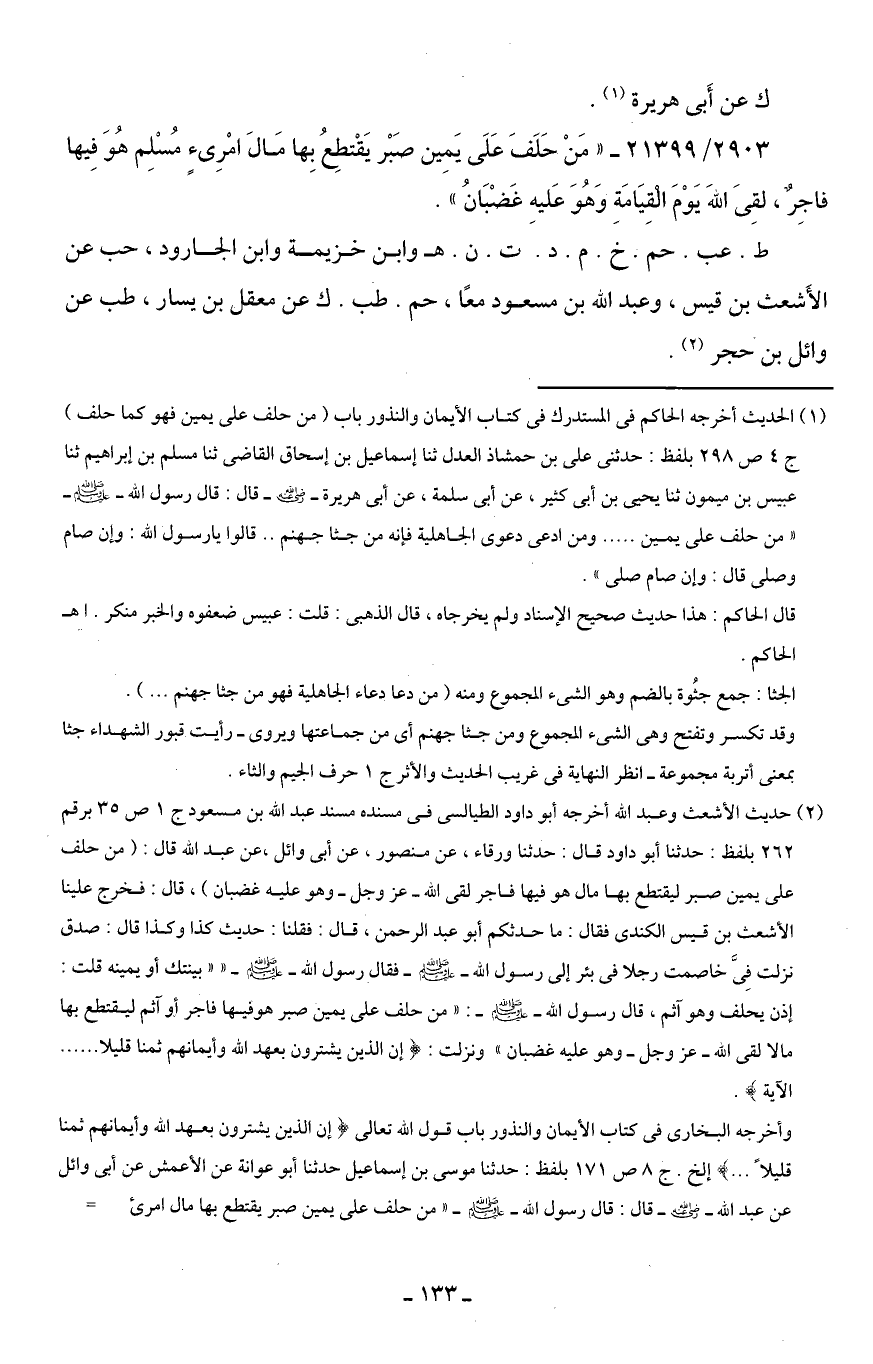 ك عن أَبى هريرة (١) .
٢١٣٩٩/٢٩٠٣ ـ « مَنْ حَلَفَ عَلَى يَمِين صَبْر يَقْتطِعُ بِها مَـالَ امْرِىءٍ مُسْلِم هُوَ فِيها
فاجِرٌ ، لقِىَ اللهَ يَوْمَ الْقِيَامَةِ وَهُوَ عَليهِ غَضْبَانُ » .
ط . عب . حم . خ . م . د . ت . ن . هـ وابـن خـزيمـة وابن الجـارود ، حب عن
الأَشعث بن قيس ، وعبد الله بن مسعـود معًا ، حم . طب . ك عن معقل بن يسار ، طب عن
وائل بن حجر (٢) .
(١) الحديث أخرجه الحاكم فى المستدرك فى كتـاب الأيمان والنذور باب ( من حلف على يمين فهو كما حلف )
ج ٤ ص ٢٩٨ بلفظ : حدثنى على بن حمشاذ العدل ثنا إسماعيل بن إسحاق القاضى ثنا مسلم بن إبراهيم ثنا
عبيس بن ميمون ثنا يحيى بن أبى كثير ، عن أبى سلمة ، عن أبى هريرة ـ رضي الله عنه ـ قال : قال رسول الله ـ ﷺ ـ
« من حلف على يمـين ..... ومن ادعى دعوى الجـاهلية فإنه من جـثا جـهنم .. قالوا يارسـول الله : وإن صام
وصلى قال : وإن صام صلى » .
قال الحاكم : هذا حديث صحيح الإسناد ولم يخرجاه ، قال الذهبى : قلت : عبيس ضعفوه والخبر منكر . ا هـ
الحاكم .
الجثا : جمع جثُوة بالضم وهو الشىء المجموع ومنه ( من دعا دعاء الجاهلية فهو من جثا جهنم ... ) .
وقد تكسـر وتفتح وهى الشىء المجموع ومن جـثا جهنم أى من جمـاعتها ويروى ـ رأيـت قبور الشهـداء جثا
بمعنى أتربة مجموعة ـ انظر النهاية فى غريب الحديث والأثر ج ١ حرف الجيم والثاء .
(٢) حديث الأشعث وعـبد الله أخرجه أبو داود الطيالسى فـى مسنده مسند عبد الله بن مـسعود ج ١ ص ٣٥ برقم
٢٦٢ بلفظ : حدثنا أبو داود قـال : حدثنا ورقاء ، عن مـنصور ، عن أبى وائل ،عن عبـد الله قال : ( من حلف
على يمين صبـر ليقتطع بهـا مال هو فيها فـاجر لقى الله ـ عز وجل ـ وهو عليـه غضبان ) ، قال : فـخرج علينا
الأشعث بن قـيس الكندى فقال : ما حـدثكم أبو عبد الرحمن ، قـال : فقلنا : حديث كذا وكـذا قال : صدق
نزلت فِىَّ خاصمت رجلا فى بئر إلى رسـول الله ـ ﷺ ـ فقال رسول الله ـ ﷺ ـ « « بينتك أو يمينه قلت :
إذن يحلف وهو آثم ، قال رسـول الله ـ ﷺ ـ : « من حلف على يمين صبر هوفيـها فاجر أو آثم ليـقتطع بها
مالا لقى الله ـ عز وجل ـ وهو عليه غضبان » ونزلت : ﴿ إن الذين يشترون بعهد الله وأيمانهم ثمنا قليلا......
الآية ﴾ .
وأخرجه البـخارى فى كتاب الأيمان والنذور باب قـول الله تعالى ﴿ إن الذين يشترون بعـهد الله وأيمانهم ثمنا
قليلاً ...﴾ إلخ . ج ٨ ص ١٧١ بلفظ : حدثنا موسى بن إسماعيل حدثنا أبو عوانة عن الأعمش عن أبى وائل
عن عبد الله ـ رضي الله عنه ـ قال : قال رسول الله ـ ﷺ ـ « من حلف على يمين صبر يقتطع بها مال امرئ =
ـ ١٣٣ ـ